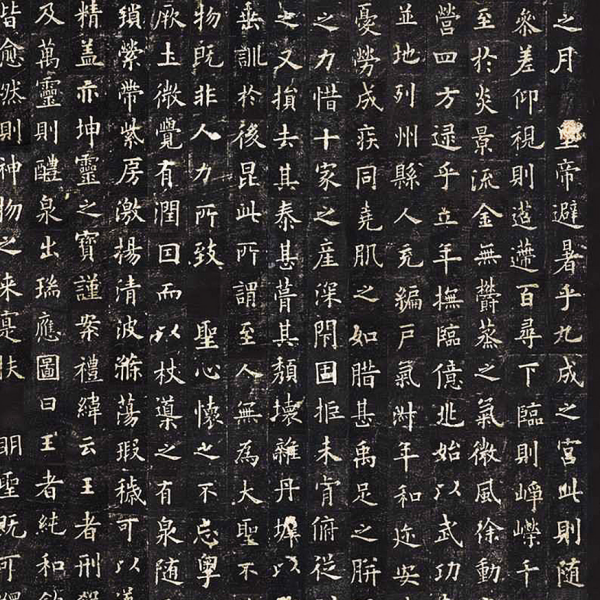 之月 皇帝避暑乎九成之宮此則随
叅差仰視則迢遰百尋下臨則崢嶸千
至於炎景流金無欝蒸之氣微風徐動
營四方逮乎立年撫臨億兆始以武功
並地列州縣人充編戶氣淑年和迩安
憂勞成疾同堯肌之如腊甚禹足之胼
之力惜十家之産深閇固拒未肯俯從
之又損去其泰甚葺其頹壞雜丹墀以
垂訓於後昆此所謂至人無為大聖不
物既非人力所致 聖心懷之不忘粤
厥土微覺有潤因而以杖導之有泉随
鎖縈帶紫房激揚清波滌蕩瑕穢可以導
精盖亦坤靈之寶謹案禮緯云王者刑殺
及萬靈則醴泉出瑞應圖曰王者純和飲
皆愈然則神物之来寔扶 明聖既可蠲